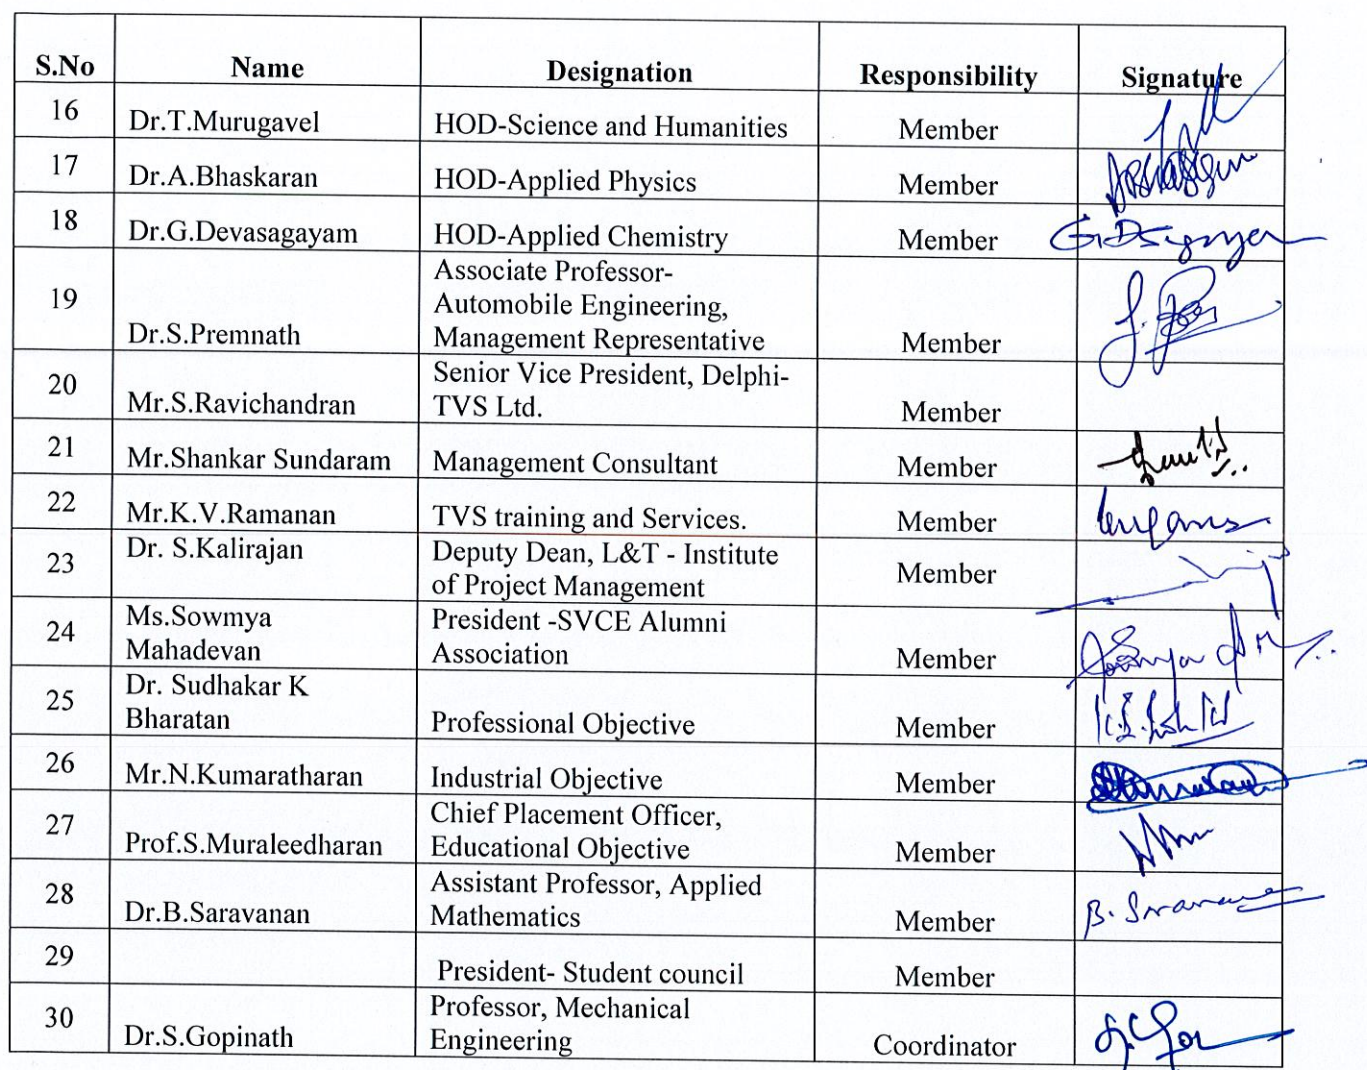 S.No Name Designation Responsibility Signature
16 Dr.T.Murugavel HOD-Science and Humanities Member
17 Dr.A.Bhaskaran HOD-Applied Physics Member
18 Dr.G.Devasagayam HOD-Applied Chemistry Member
19 Dr.S.Premnath Associate Professor-
Automobile Engineering,
Management Representative Member
20 Mr.S.Ravichandran Senior Vice President, Delphi-
TVS Ltd. Member
21 Mr.Shankar Sundaram Management Consultant Member
22 Mr.K.V.Ramanan TVS training and Services. Member
23 Dr. S.Kalirajan Deputy Dean, L&T - Institute
of Project Management Member
24 Ms.Sowmya
Mahadevan President -SVCE Alumni
Association Member
25 Dr. Sudhakar K
Bharatan Professional Objective Member
26 Mr.N.Kumaratharan Industrial Objective Member
27 Prof.S.Muraleedharan Chief Placement Officer,
Educational Objective Member
28 Dr.B.Saravanan Assistant Professor, Applied
Mathematics Member
29 President- Student council Member
30 Dr.S.Gopinath Professor, Mechanical
Engineering Coordinator